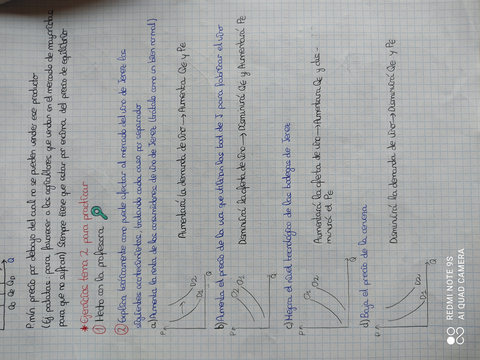 Pmín: precio por debajo del cual no se pueden vender ese producto
(Ej patatas: para favorecer a los agricultores que venden en el mercado de mayoristas
para que no sufran) Siempre tiene que estar por encima del precio de equilibrio
* Ejercicios tema 2 para practicar
① Hecho con la profesora
② Explica teóricamente como puede afectar al mercado del vino de Jerez los
siguientes acontecimientos, tratando cada caso por separado
a) Aumenta la renta de los consumidores de vino de Jerez (tratado como un bien normal)
Aumentará la demanda de vino → Aumenta Qe y Pe
b) Aumenta el precio de la uva que utilizan las bod de J para fabricar el vino
Disminuirá la oferta de vino → Disminuirá Qe y Aumentará Pe
c) Mejora el nivel tecnológico de las bodegas de Jerez
Aumentará la oferta de vino → Aumentará Qe y dis-
minuirá el Pe
d) Baja el precio de la cerveza
Disminuirá la demanda de vino → Disminuirá Qe y Pe
REDMI NOTE 8S
AI QUAD CAMERA